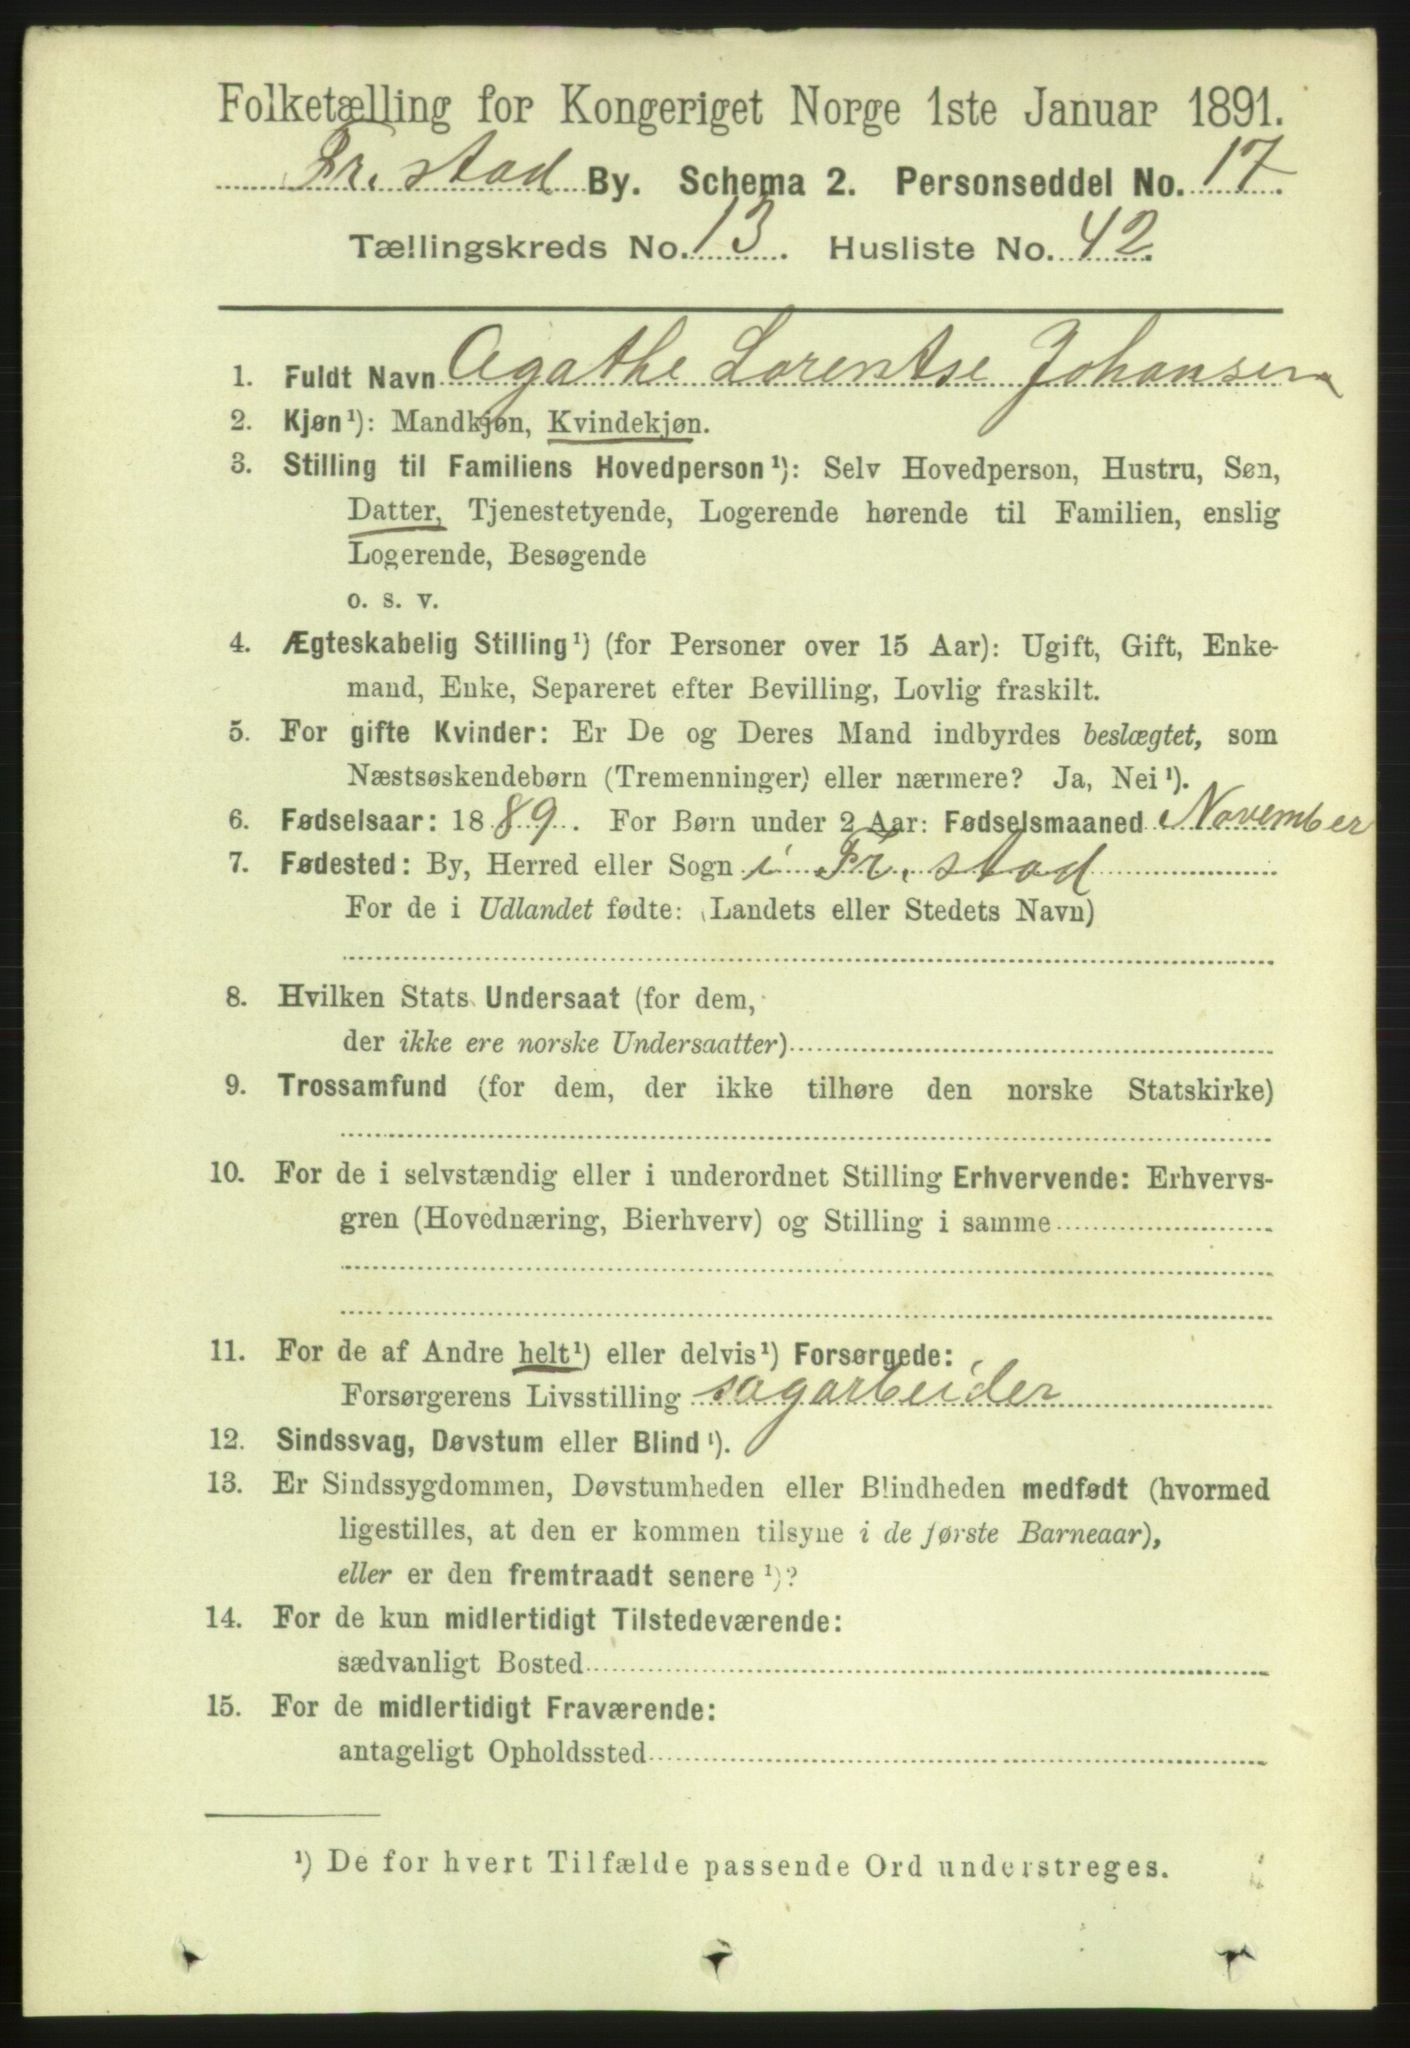 Folketælling for Kongeriget Norge 1ste Januar 1891.
Fr. stad By. Schema 2. Personseddel No. 17.
Tællingskreds No. 13. Husliste No. 42.
1. Fuldt Navn Agathe Lorentse Johansen
2. Kjøn¹): Mandkjøn, Kvindekjøn.
3. Stilling til Familiens Hovedperson¹): Selv Hovedperson, Hustru, Søn,
Datter, Tjenestetyende, Logerende hørende til Familien, enslig
Logerende, Besøgende
o. s. v.
4. Ægteskabelig Stilling¹) (for Personer over 15 Aar): Ugift, Gift, Enke-
mand, Enke, Separeret efter Bevilling, Lovlig fraskilt.
5. For gifte Kvinder: Er De og Deres Mand indbyrdes beslægtet, som
Næstsøskendebørn (Tremenninger) eller nærmere? Ja, Nei¹).
6. Fødselsaar: 1889. For Børn under 2 Aar: Fødselsmaaned November
7. Fødested: By, Herred eller Sogn i Fr. stad
For de i Udlandet fødte: (Landets eller Stedets Navn)
8. Hvilken Stats Undersaat (for dem,
der ikke ere norske Undersaatter)
9. Trossamfund (for dem, der ikke tilhøre den norske Statskirke)
10. For de i selvstændig eller i underordnet Stilling Erhvervende: Erhvervs-
gren (Hovednæring, Bierhverv) og Stilling i samme
11. For de af Andre helt¹) eller delvis¹) Forsørgede:
Forsørgerens Livsstilling sagarbeider
12. Sindssvag, Døvstum eller Blind¹).
13. Er Sindssygdommen, Døvstumheden eller Blindheden medfødt (hvormed
ligestilles, at den er kommen tilsyne i de første Barneaar),
eller er den fremtraadt senere¹)?
14. For de kun midlertidigt Tilstedeværende:
sædvanligt Bosted
15. For de midlertidigt Fraværende:
antageligt Opholdssted
¹) De for hvert Tilfælde passende Ord understreges.